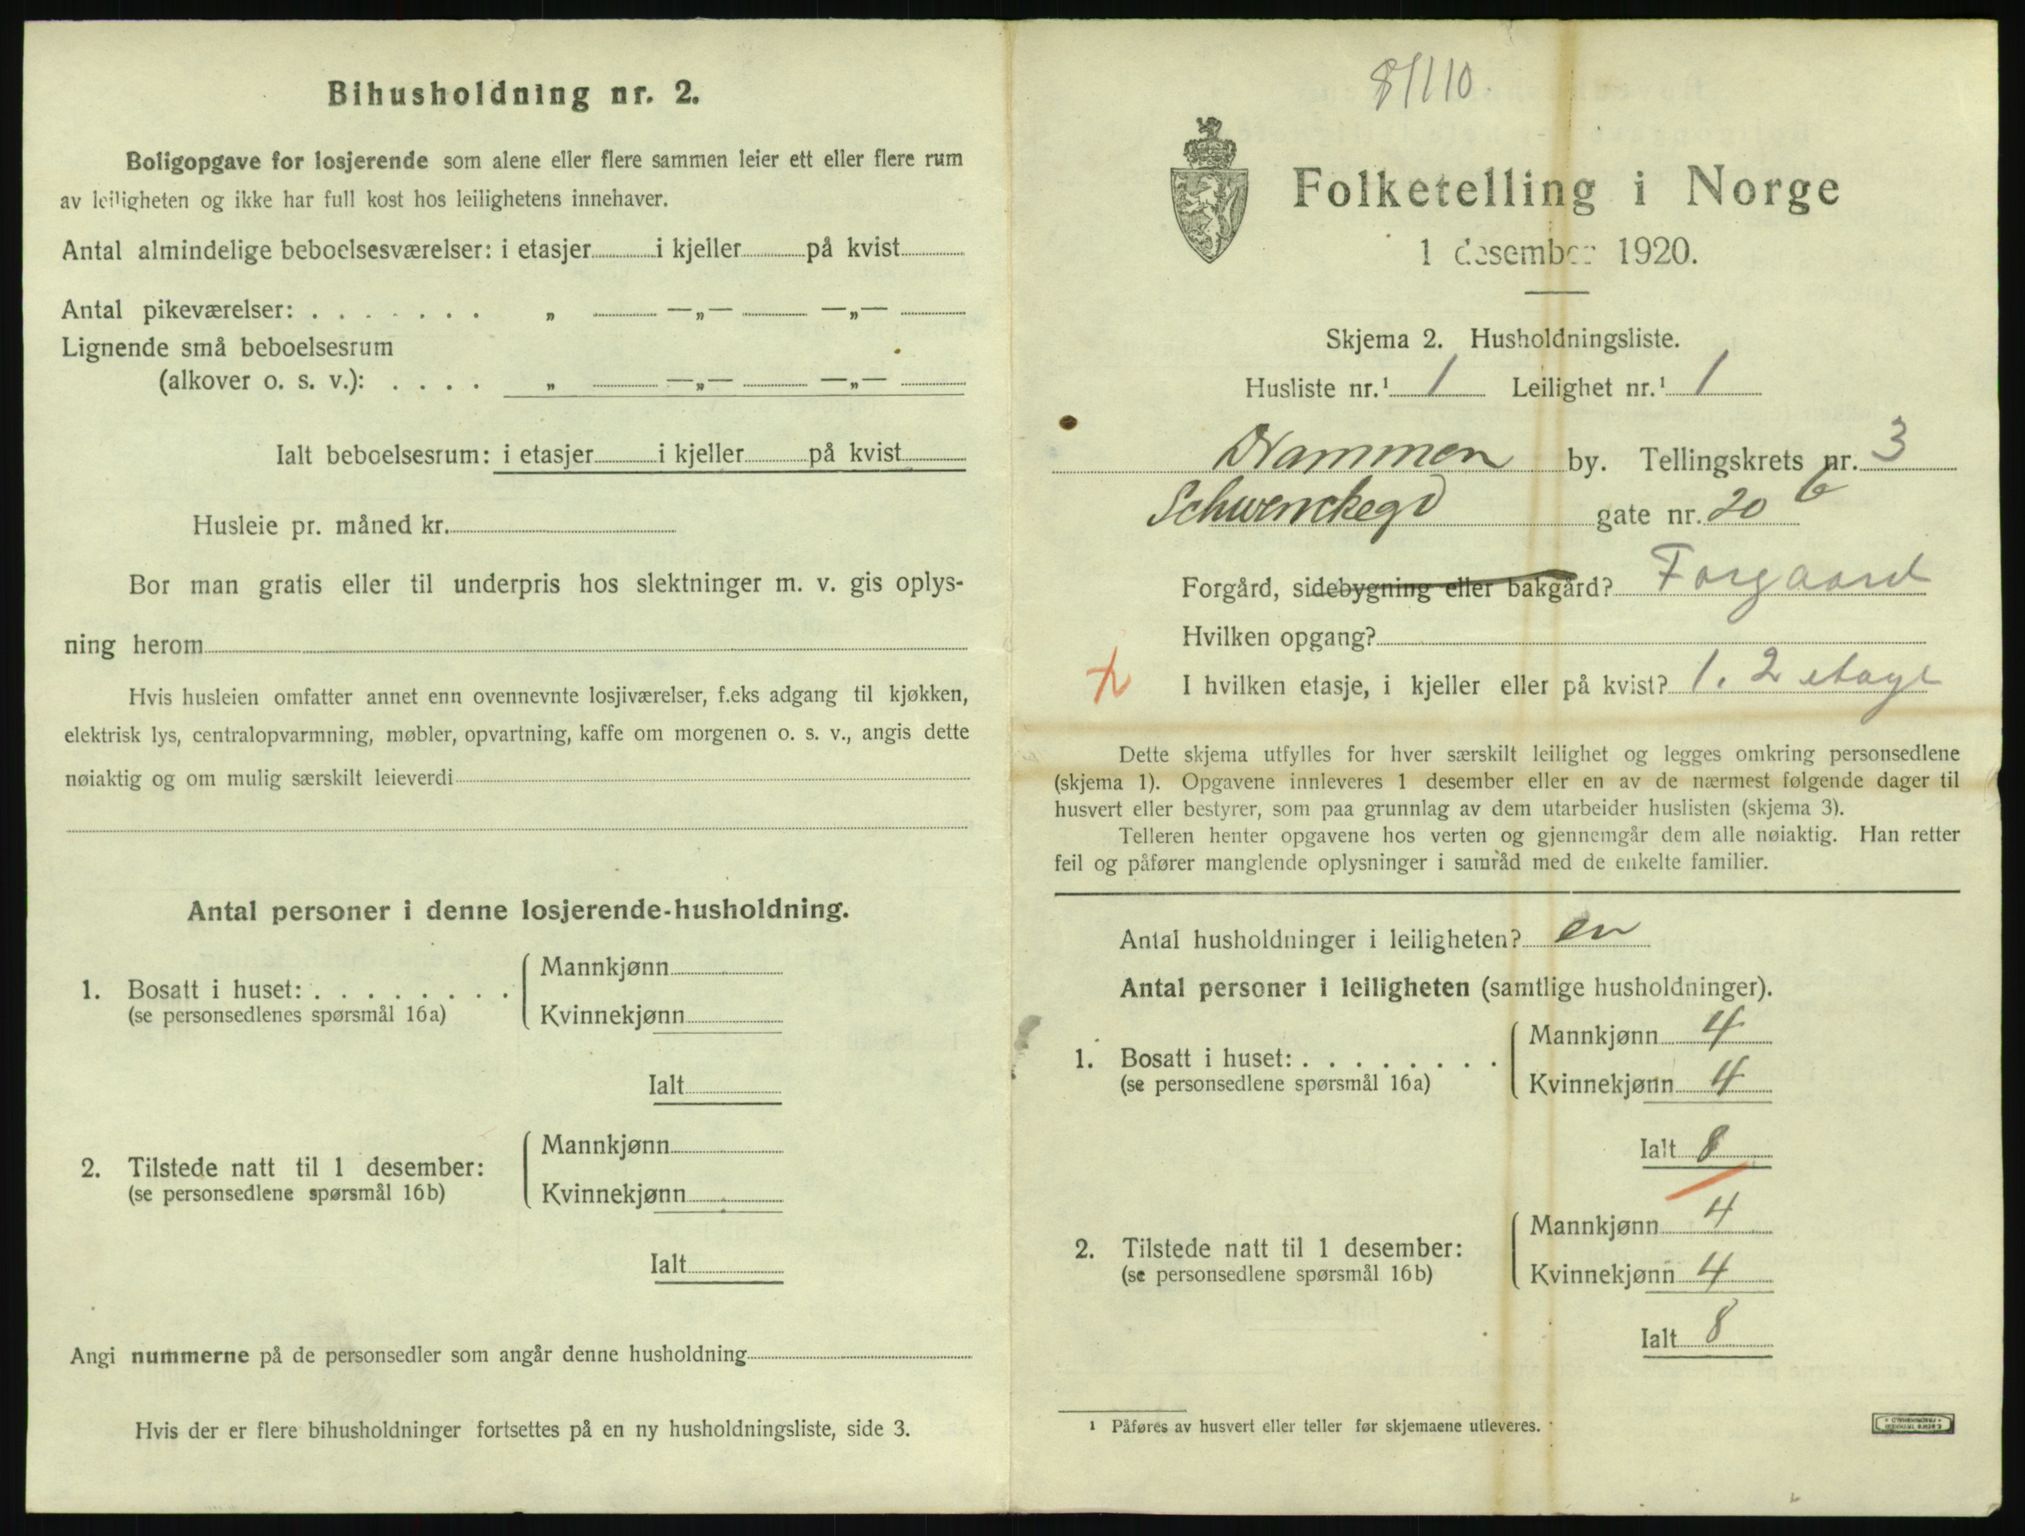 Bihusholdning nr. 2.
Boligopgave for losjerende som alene eller flere sammen leier ett eller flere rum
av leiligheten og ikke har full kost hos leilighetens innehaver.
Antal almindelige beboelsesværelser: i etasjer i kjeller på kvist
Antal pikeværelser: . . . . . . . „ —„— —„—
Lignende små beboelsesrum
(alkover o. s. v.): . . . . „ —„— —„—
Ialt beboelsesrum: i etasjer i kjeller på kvist
Husleie pr. måned kr.
Bor man gratis eller til underpris hos slektninger m. v. gis oplys-
ning herom
Hvis husleien omfatter annet enn ovennevnte losjiværelser, f.eks adgang til kjøkken,
elektrisk lys, centralopvarmning, møbler, opvartning, kaffe om morgenen o. s. v., angis dette
nøiaktig og om mulig særskilt leieverdi
Antal personer i denne losjerende-husholdning.
1. Bosatt i huset: . . . . . . . .
(se personsedlenes spørsmål 16a)
Mannkjønn
Kvinnekjønn
Ialt
2. Tilstede natt til 1 desember:
(se personsedlene spørsmål 16b)
Mannkjønn
Kvinnekjønn
Ialt
Angi nummerne på de personsedler som angår denne husholdning
Hvis der er flere bihusholdninger fortsettes på en ny husholdningsliste, side 3.
8/110.
Folketelling i Norge
1 desember 1920.
Skjema 2. Husholdningsliste.
Husliste nr.¹ 1 Leilighet nr.¹ 1
Drammen by. Tellingskrets nr. 3
Schwenckegd gate nr. 20 b
Forgård, sidebygning eller bakgård? Forgaard
Hvilken opgang?
I hvilken etasje, i kjeller eller på kvist? 1. 2 etage
Dette skjema utfylles for hver særskilt leilighet og legges omkring personsedlene
(skjema 1). Opgavene innleveres 1 desember eller en av de nærmest følgende dager til
husvert eller bestyrer, som paa grunnlag av dem utarbeider huslisten (skjema 3).
Telleren henter opgavene hos verten og gjennemgår dem alle nøiaktig. Han retter
feil og påfører manglende oplysninger i samråd med de enkelte familier.
Antal husholdninger i leiligheten? en
Antal personer i leiligheten (samtlige husholdninger).
1. Bosatt i huset: . . . . . . . .
(se personsedlene spørsmål 16a)
Mannkjønn 4
Kvinnekjønn 4
Ialt 8
2. Tilstede natt til 1 desember:
(se personsedlene spørsmål 16b)
Mannkjønn 4
Kvinnekjønn 4
Ialt 8
¹ Påføres av husvert eller teller før skjemaene utleveres.